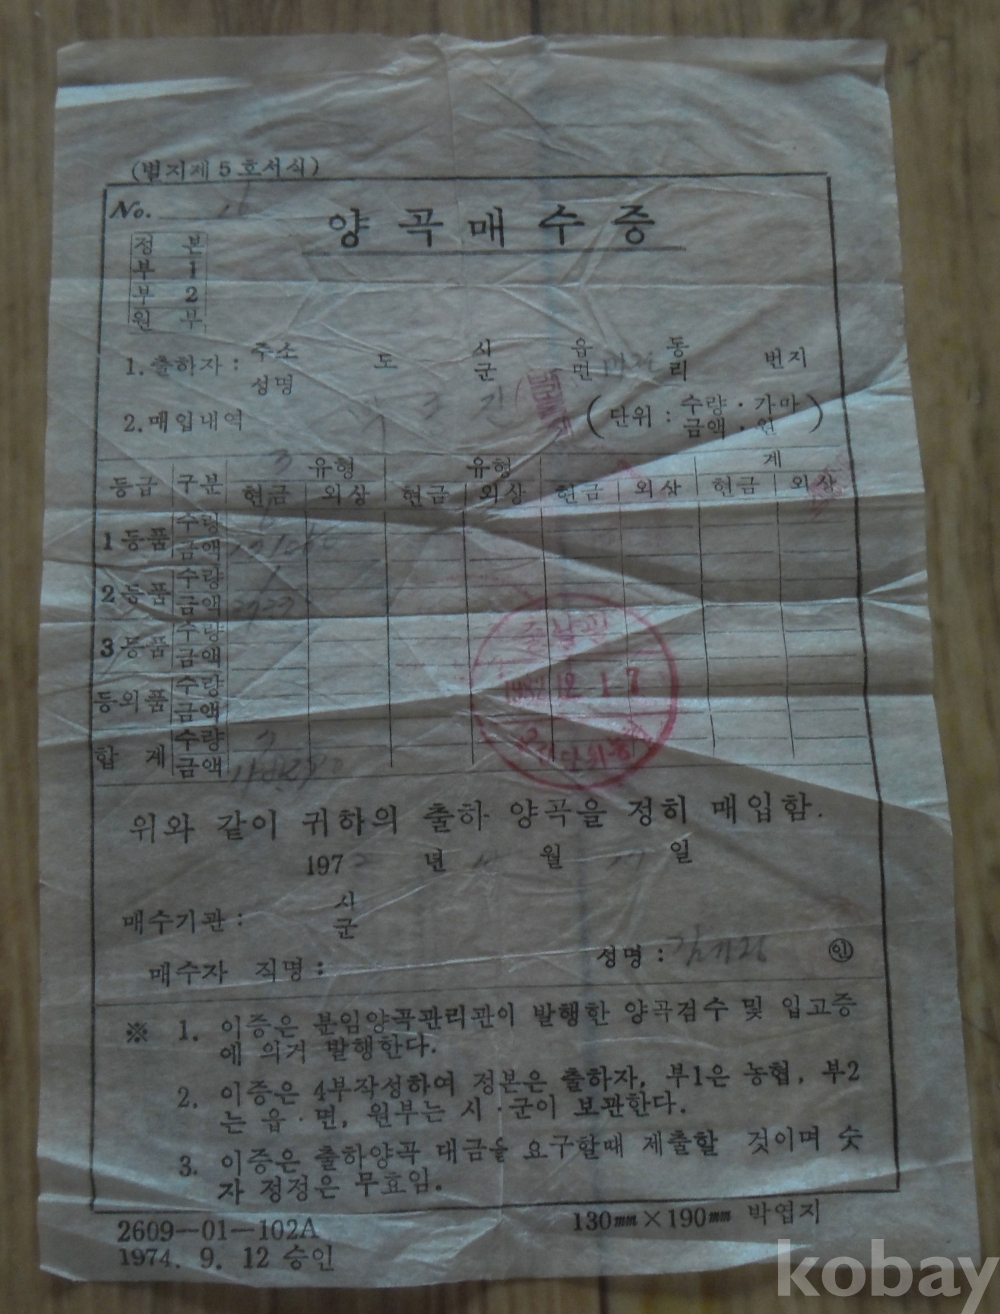 (별지제 5 호서식)
No.
양곡매수증
정 본
부 1
부 2
원 부
1. 출하자 : 주소 도 시 군 읍 면 동 리 번지
성명
2. 매입내역 (단위 : 수량 · 가마 금액 · 원)
3 유형 유형 계
등급 구분 현금 외상 현금 외상 현금 외상 현금 외상
1등품 수량
금액
2등품 수량
금액
3등품 수량
금액
등외품 수량
금액
합 계 수량
금액
12. 1. 7
단위
위와 같이 귀하의 출하 양곡을 정히 매입함.
197 년 월 일
매수기관 : 시 군
매수자 직명 : 성명 : 인
※ 1. 이증은 분임양곡관리관이 발행한 양곡검수 및 입고증
에 의거 발행한다.
2. 이증은 4부작성하여 정본은 출하자, 부1은 농협, 부2
는 읍 · 면, 원부는 시 · 군이 보관한다.
3. 이증은 출하양곡 대금을 요구할때 제출할 것이며 숫
자 정정은 무효임.
2609-01-102A 130㎜×190㎜ 박엽지
1974. 9. 12 승인
kobay